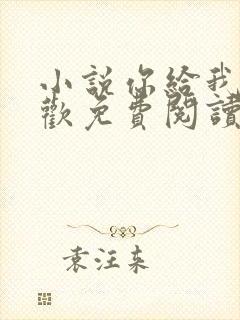 小說你給我
歡免費閱讀
袁汪来